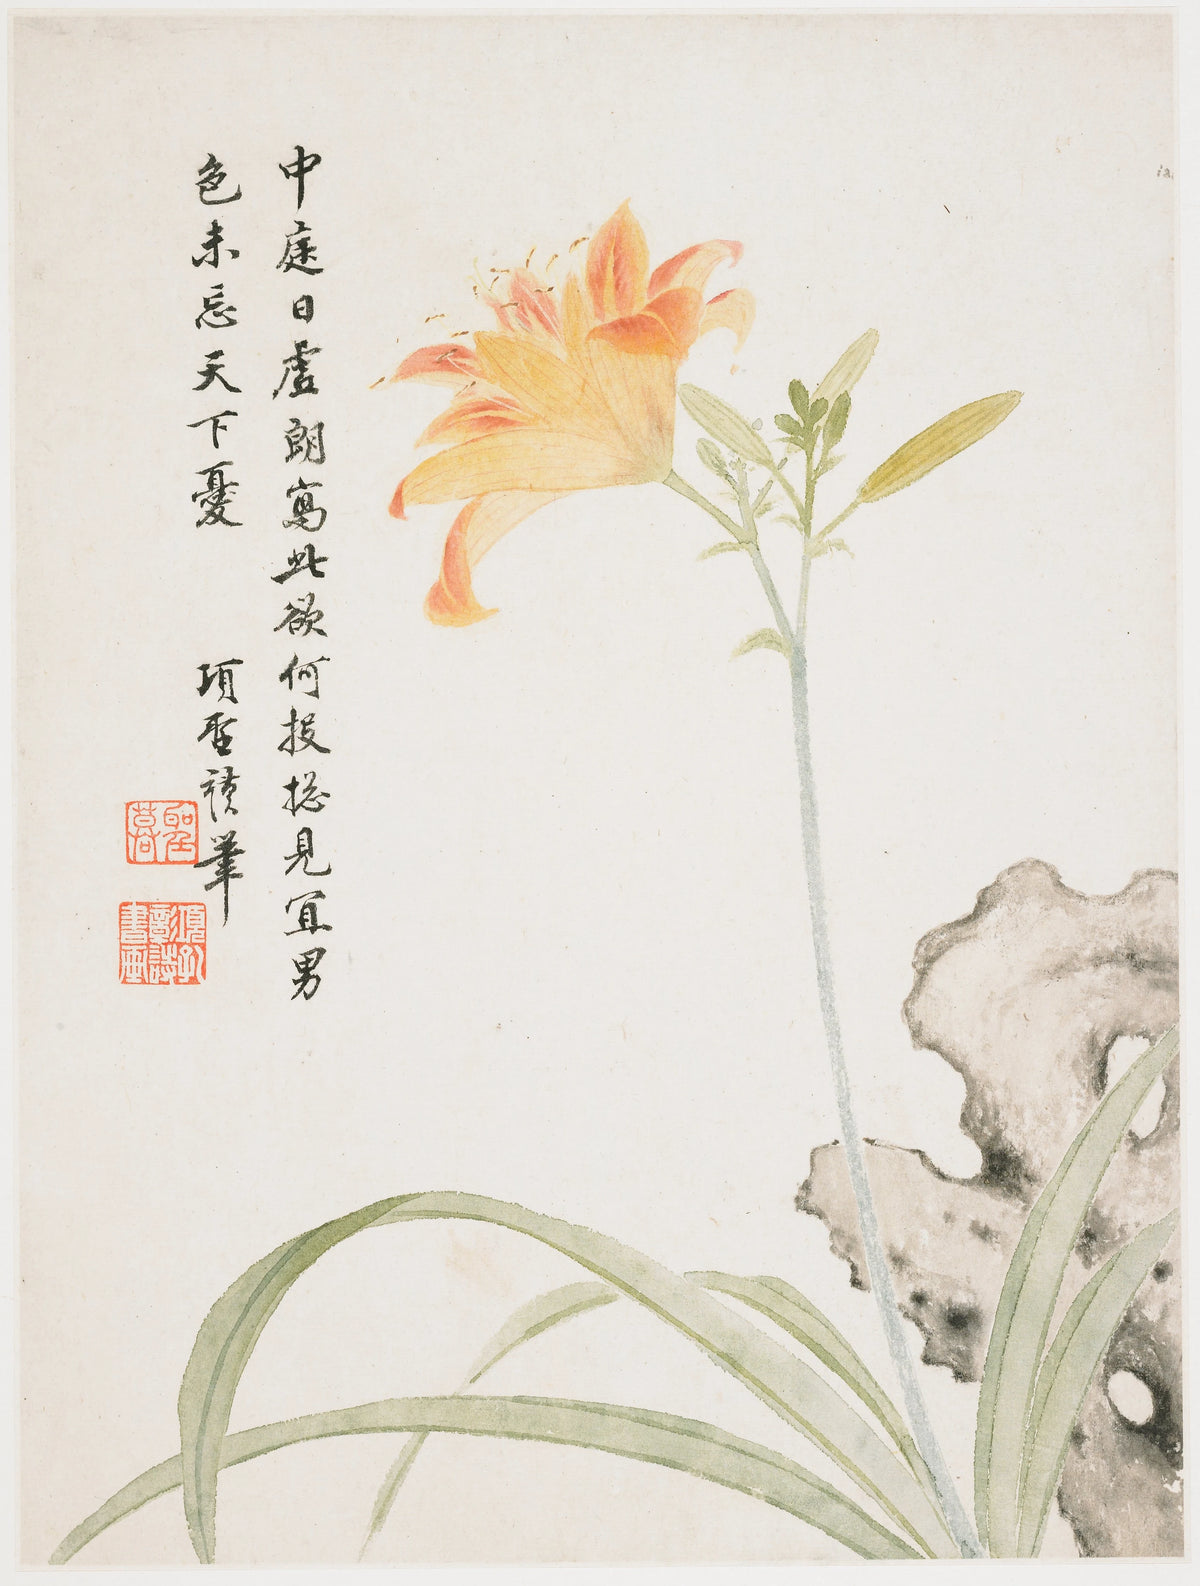 中庭日虚朗寫此欲何投摠見宜男
色未忘天下憂　項聖謨筆
項孔彰詩書畫